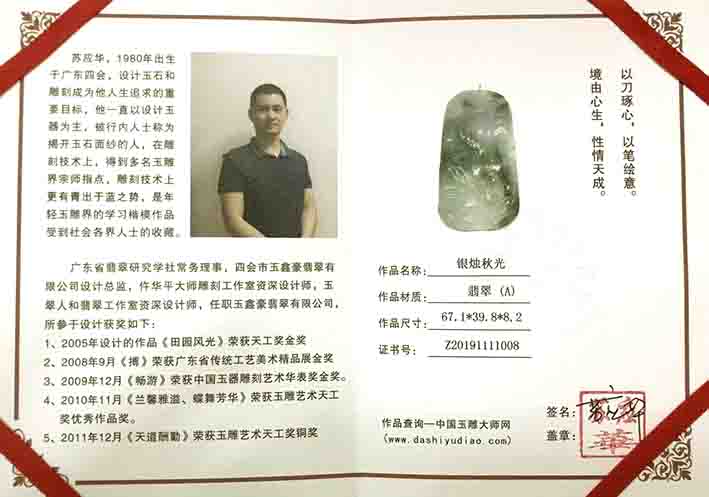 苏应华，1980年出生
于广东四会，设计玉石和
雕刻成为他人生追求的重
要目标，他一直以设计玉
器为主，被行内人士称为
揭开玉石面纱的人，在雕
刻技术上，得到多名玉雕
界宗师指点，雕刻技术上
更有青出于蓝之势，是年
轻玉雕界的学习楷模作品
受到社会各界人士的收藏。
广东省翡翠研究学社常务理事，四会市玉鑫豪翡翠有
限公司设计总监，仵华平大师雕刻工作室资深设计师，玉
翠人和翡翠工作室资深设计师，任职玉鑫豪翡翠有限公司，
所参于设计获奖如下：
1、2005年设计的作品《田园风光》荣获天工奖金奖
2、2008年9月《搏》荣获广东省传统工艺美术精品展金奖
3、2009年12月《畅游》荣获中国玉器雕刻艺术华表奖金奖。
4、2010年11月《兰馨雅溢、蝶舞芳华》荣获玉雕艺术天工
奖优秀作品奖。
5、2011年12月《天道酬勤》荣获玉雕艺术天工奖铜奖
以刀琢心，以笔绘意。
境由心生，性情天成。
作品名称：银烛秋光
作品材质：翡翠（A）
作品尺寸：67.1*39.8*8.2
证书号：Z20191111008
作品查询—中国玉雕大师网
(www.dashiyudiao.com)
签名：
盖章：